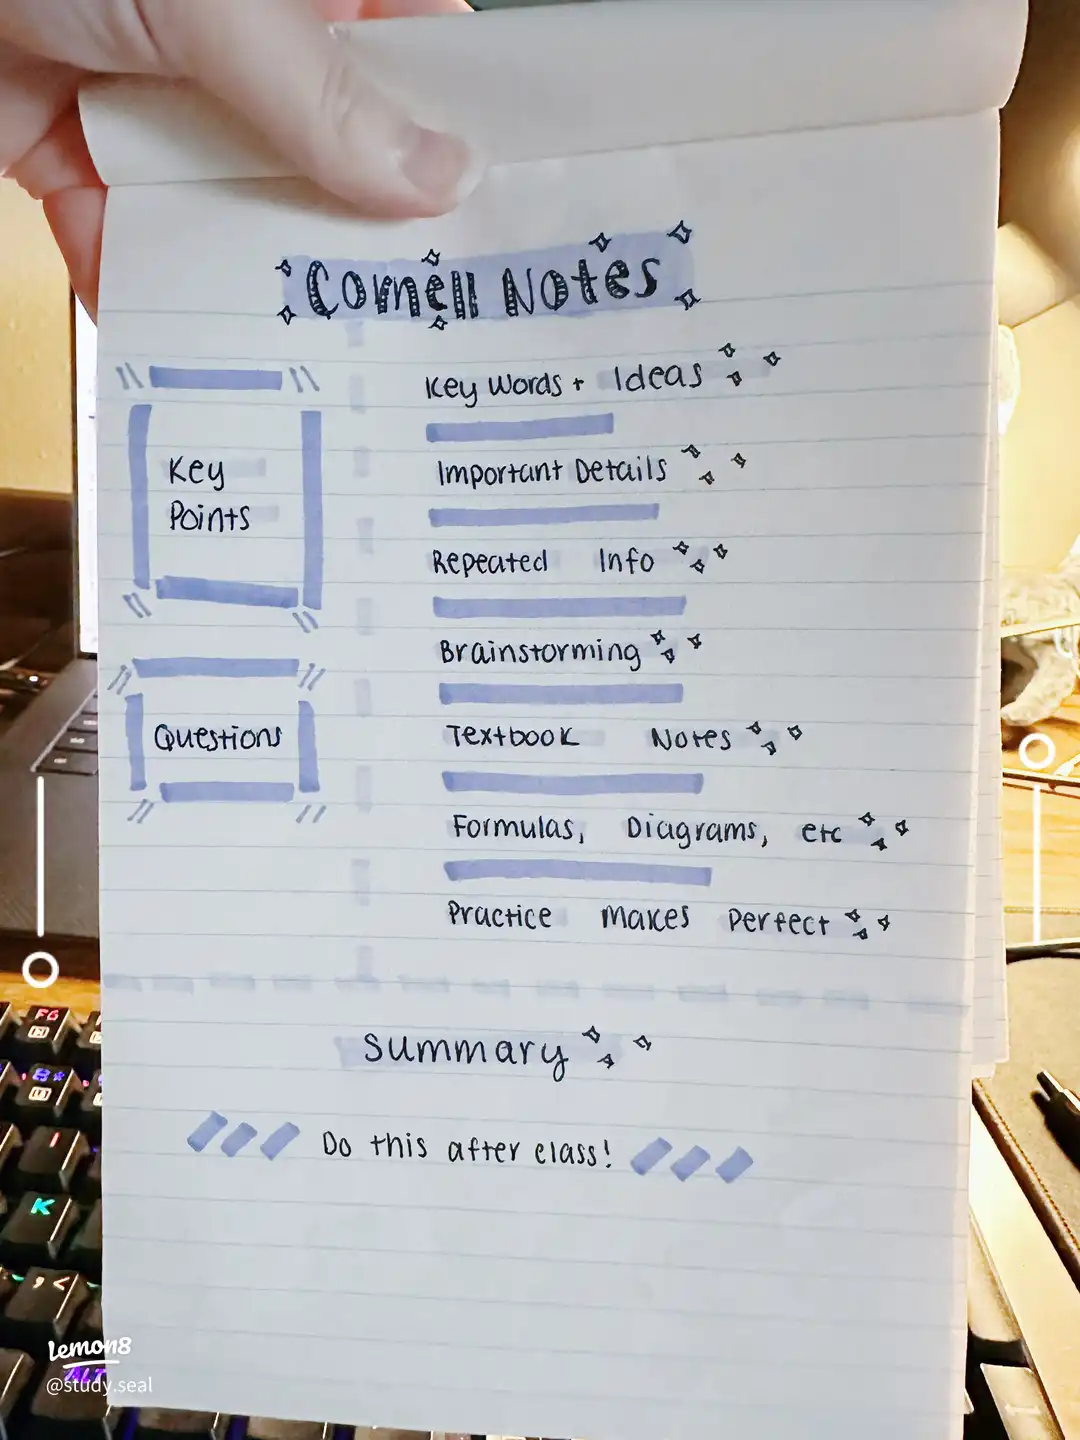 Cornell Notes
Key
Points
Questions
Key Words + Ideas
Important Details
Repeated Info
Brainstorming
Textbook Notes
Formulas, Diagrams, etc
Practice Makes Perfect
Summary
Do this after class!
FG
8 *
I
K
, <
ALT
Lemon8
@study.seal